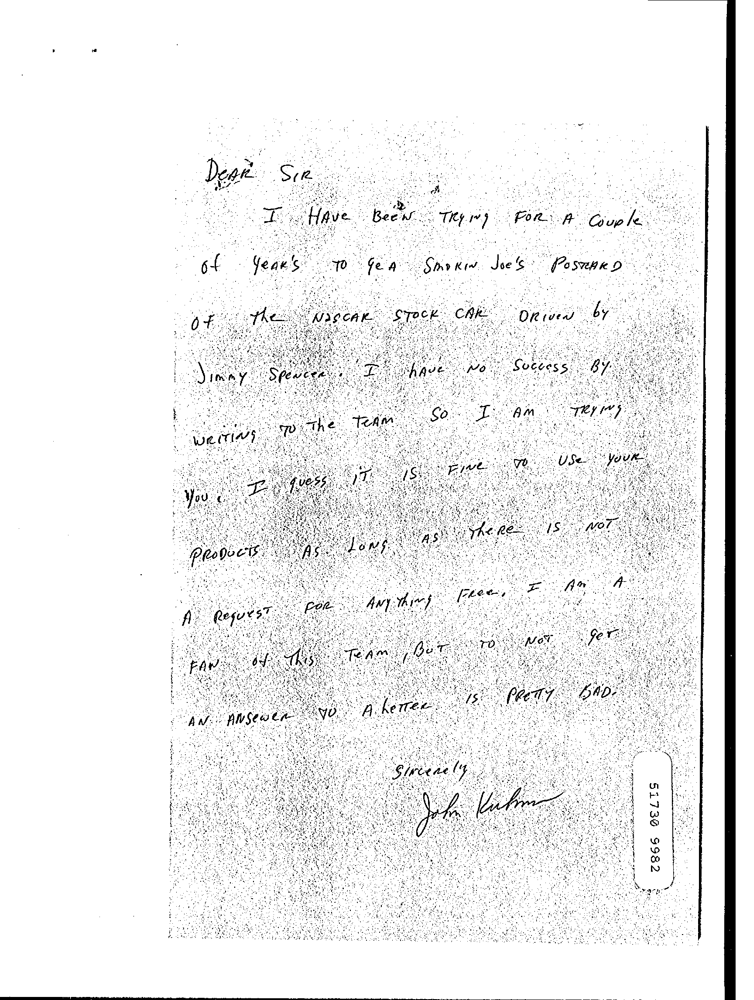 Dear Sir
I Have Been Trying For A Couple
of Year's To Ge A Smokin Joe's Postcard
of the Nascar Stock Car Driven by
Jimmy Spencer. I have No Success By
Writing To The Team So I Am Trying
You. I guess it is Fine To Use your
Products As Long As There is Not
A Request For Anything Free. I Am A
Fan of This Team, But To Not get
An Ansewer To A Letter is Pretty Bad.
Sincerely
John
51730 9982